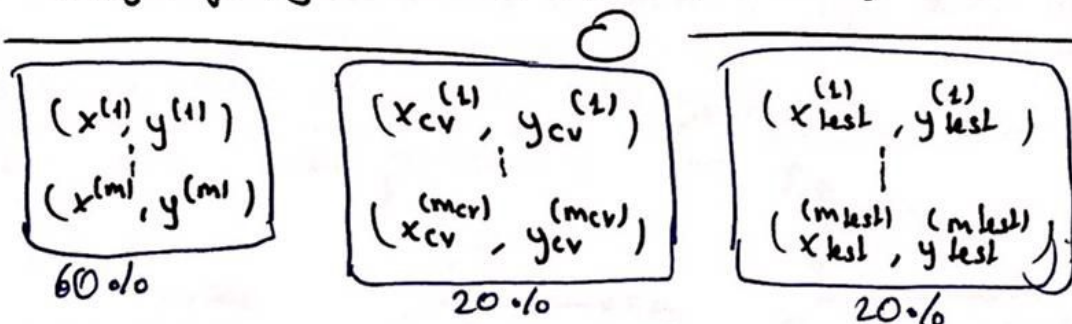 (x^(1), y^(1))
(x^(m), y^(m))
60 %
(x_cv^(1), y_cv^(1))
(x_cv^(mcv), y_cv^(mcv))
20 %
(x_test^(1), y_test^(1))
(x_test^(mtest), y_test^(mtest))
20 %